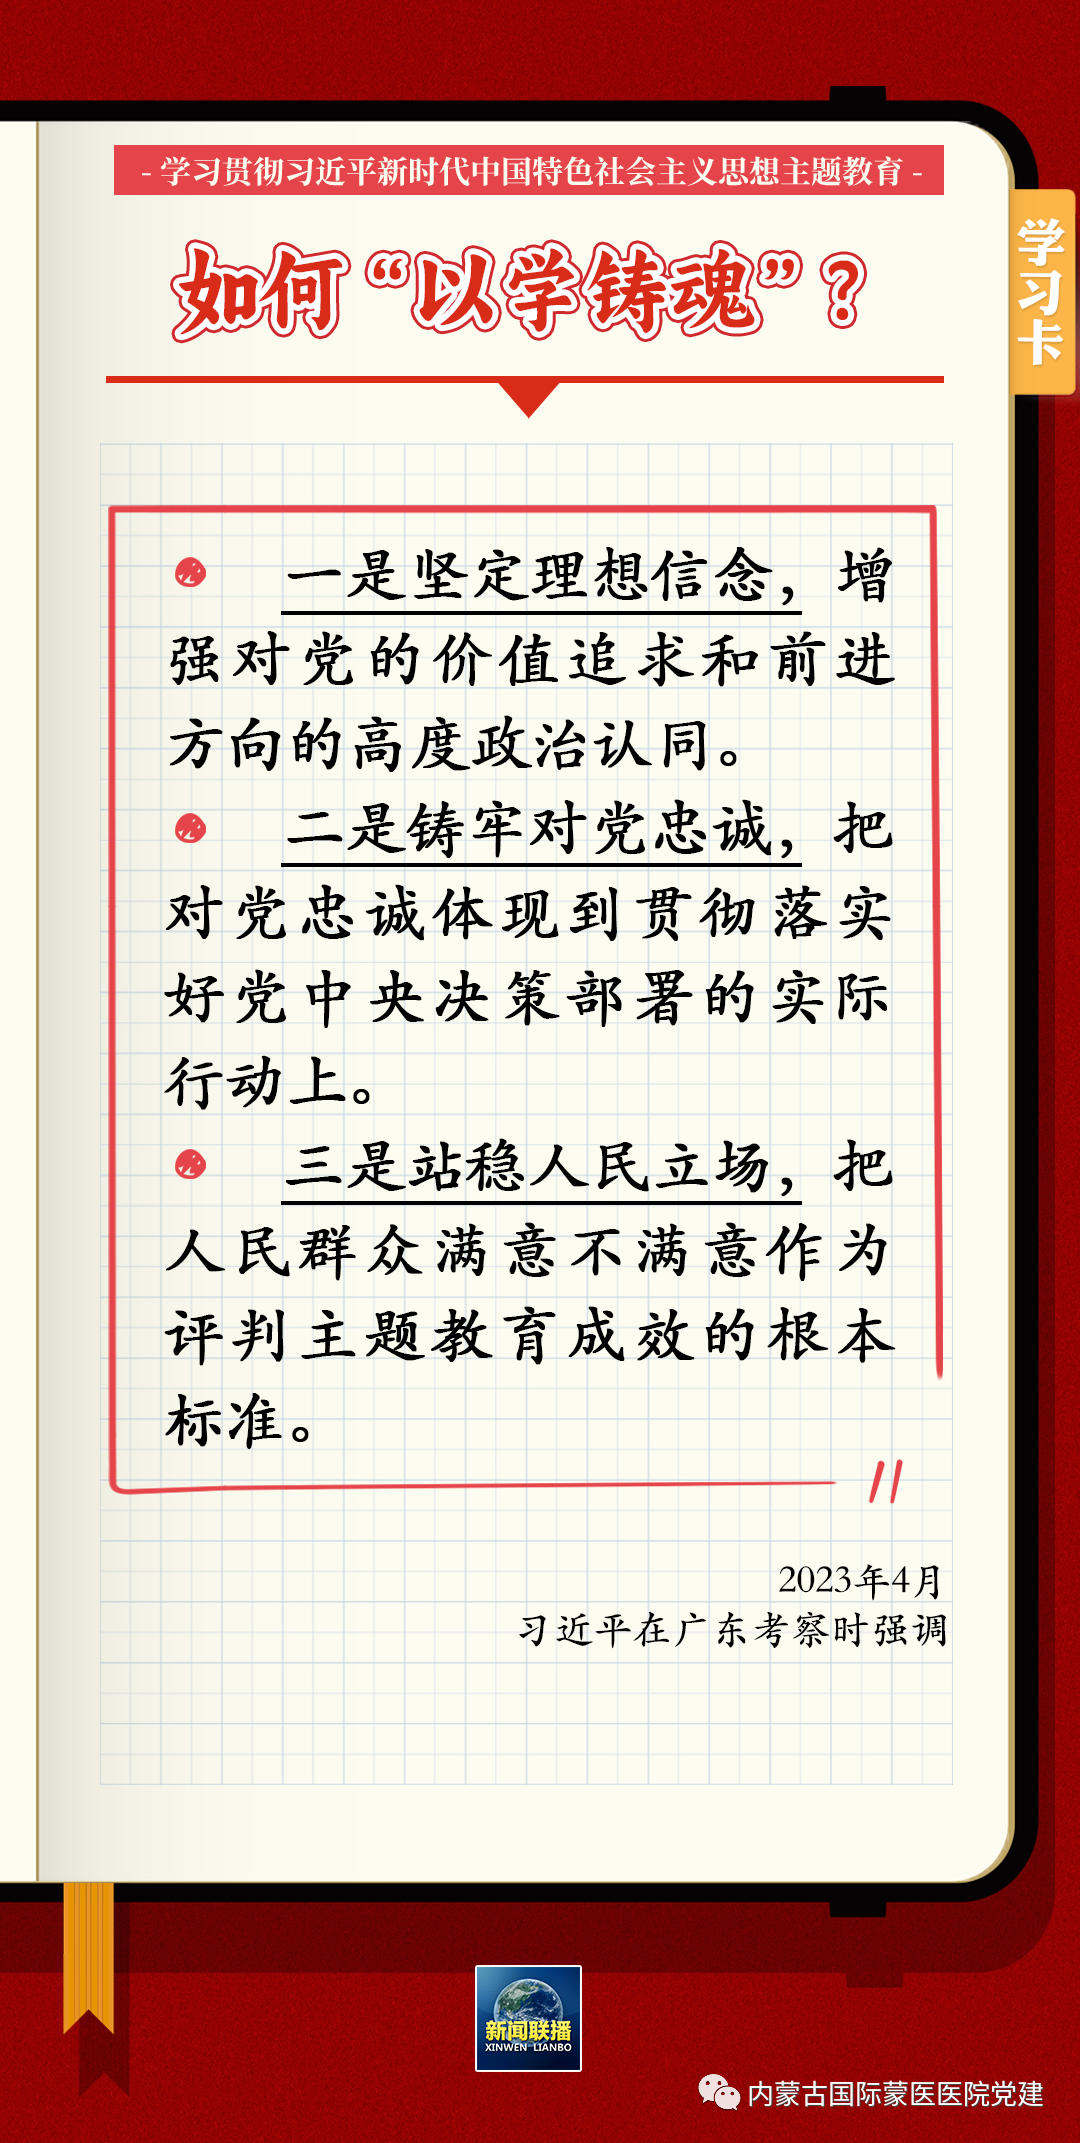 - 学习贯彻习近平新时代中国特色社会主义思想主题教育 -
学习卡
如何“以学铸魂”？
一是坚定理想信念，增
强对党的价值追求和前进
方向的高度政治认同。
二是铸牢对党忠诚，把
对党忠诚体现到贯彻落实
好党中央决策部署的实际
行动上。
三是站稳人民立场，把
人民群众满意不满意作为
评判主题教育成效的根本
标准。
2023年4月
习近平在广东考察时强调
新闻联播
XINWEN LIANBO
内蒙古国际蒙医医院党建